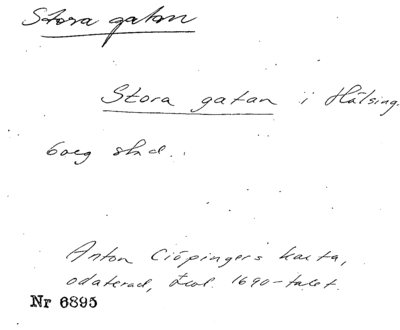 Stora gatan
Stora gatan i Hälsing.
borg stad.
Anton Ciöpingers karta,
odaterad, trol. 1690-talet.
Nr 6895